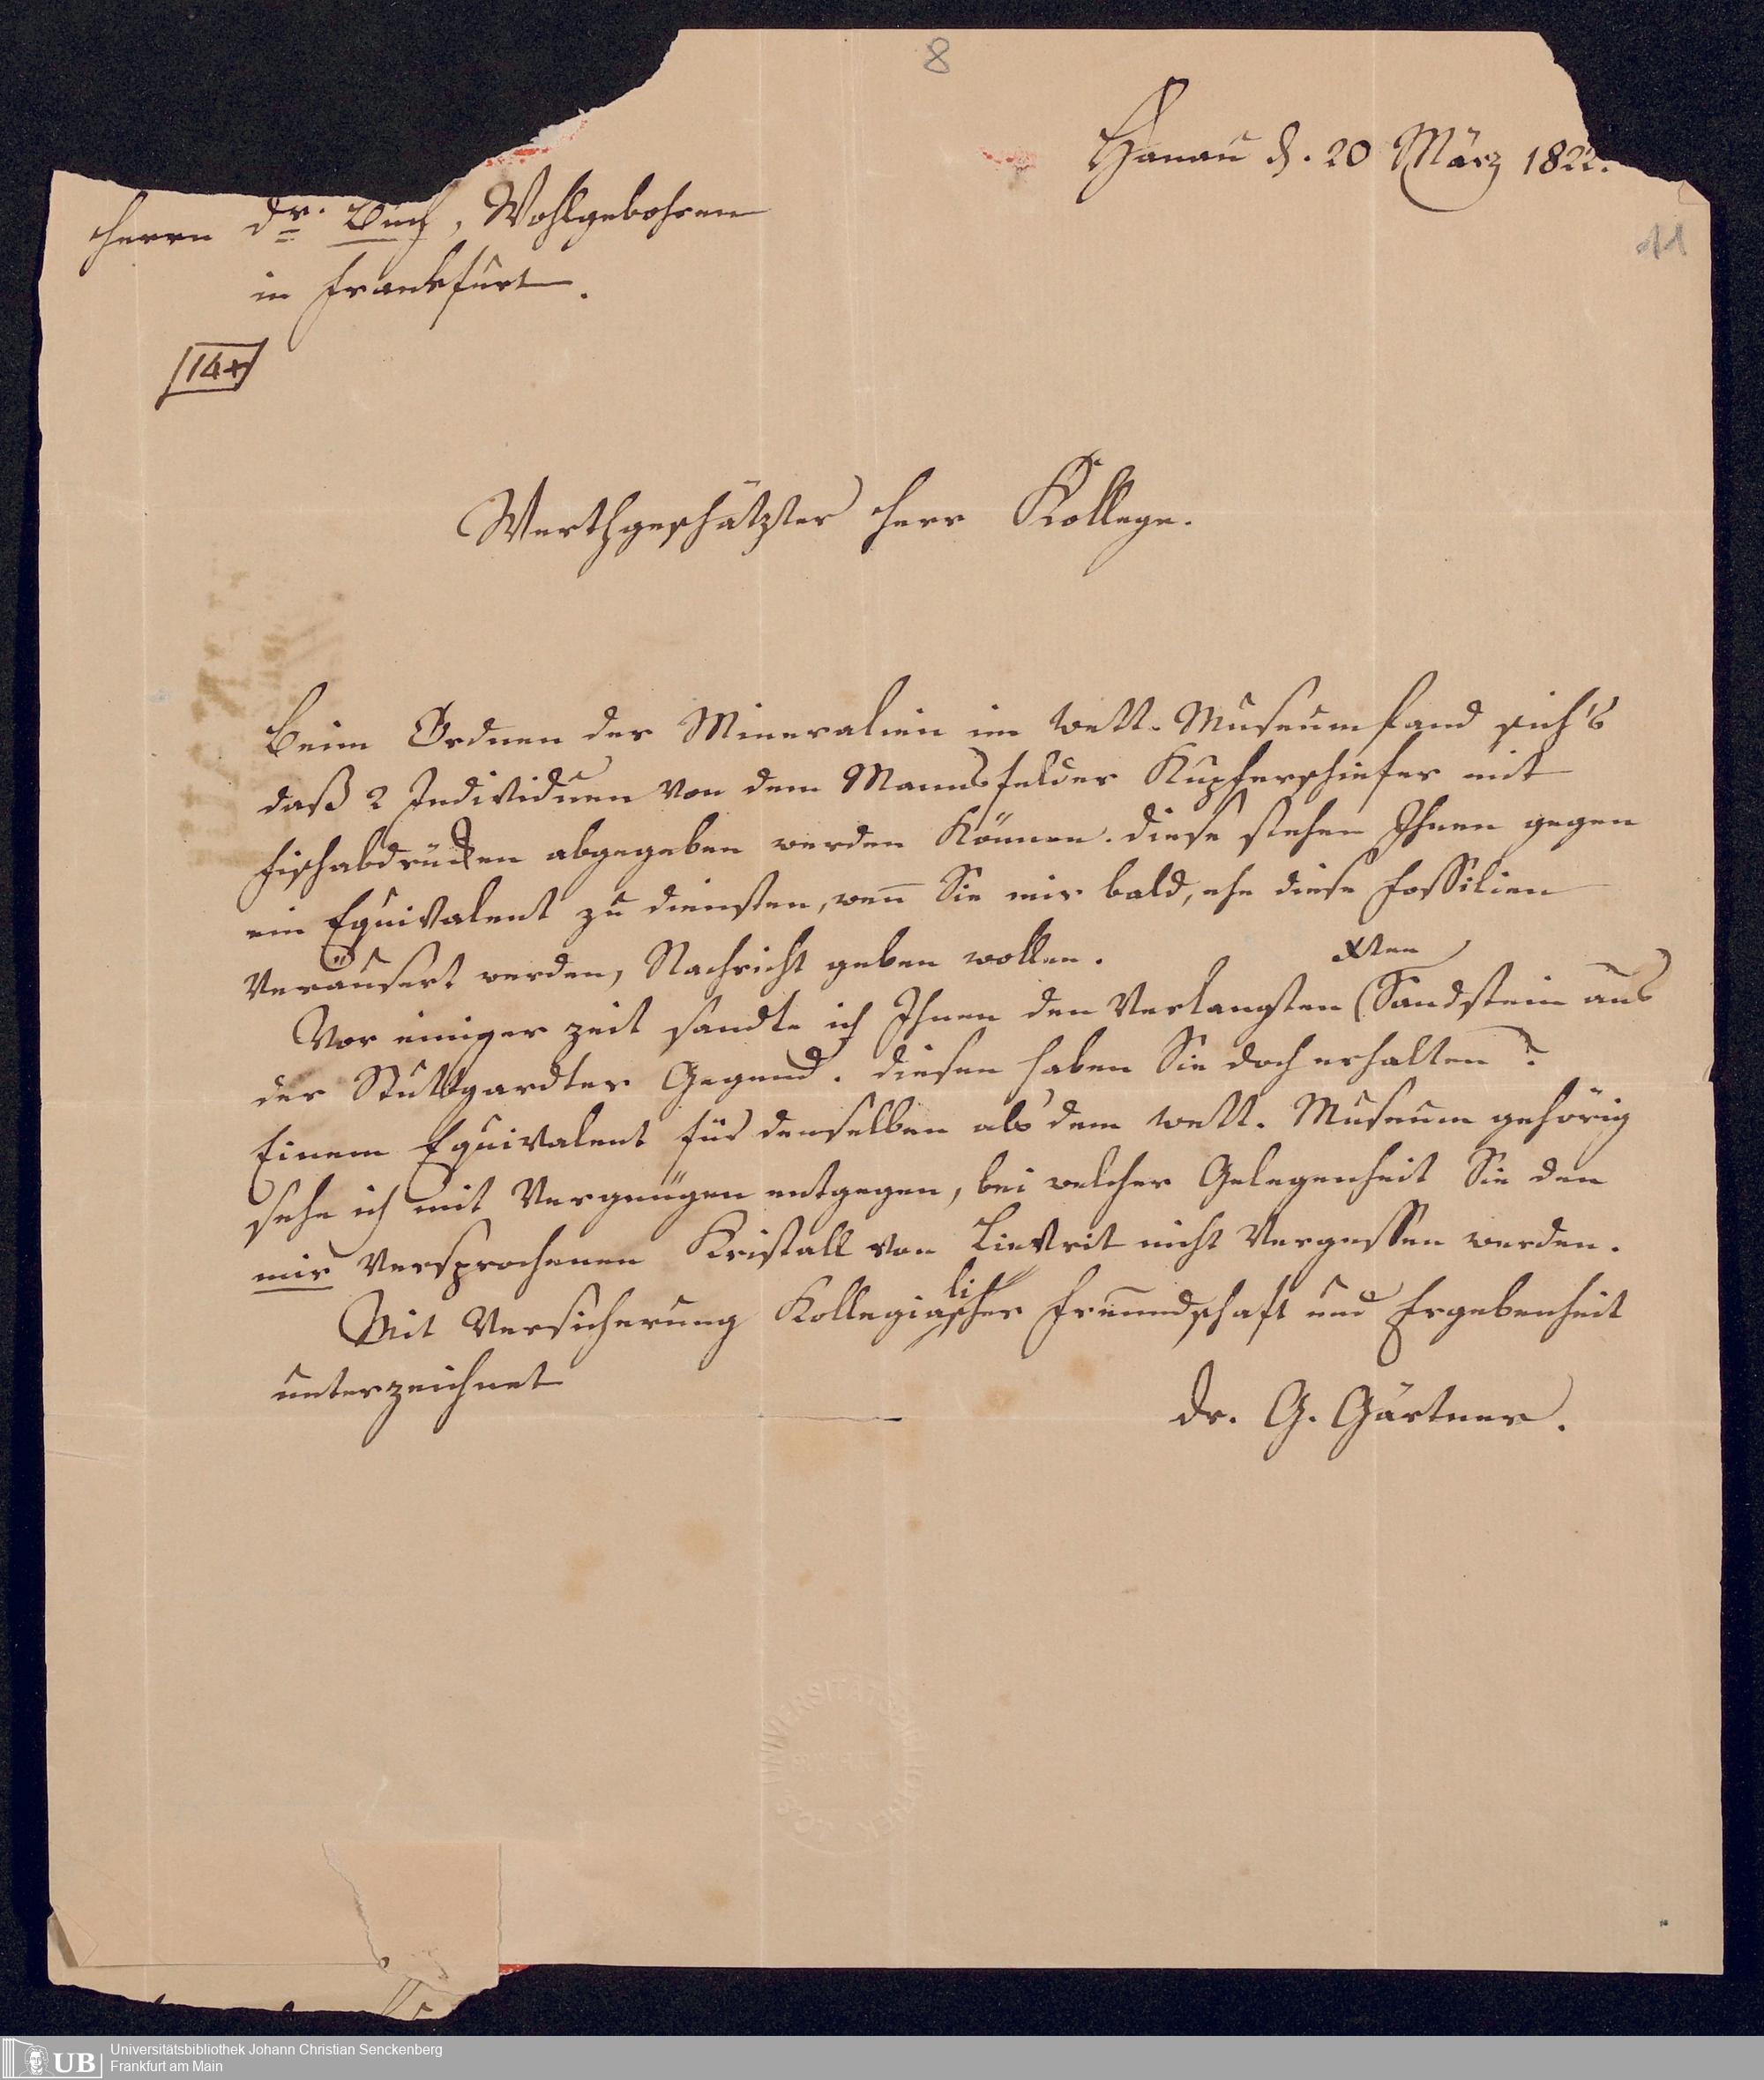 8
Hanau d. 20 März 1822.
11
Herrn Dr. Buch, Wohlgebohren
in Frankfurt.
Werthgeschätzter Herr Kollege.
Beim Ordnen der Mineralien im Wett. Museum fand sich's
daß 2 Individuen von dem Mannsfelder Kupferschiefer mit
Fischabdrücken abgegeben werden können. Diese stehen Ihnen gegen
ein Equivalent zu diensten, wenn Sie mir bald, ehe diese Fossilien
veräusert werden, Nachricht geben wollen.
Vor einiger Zeit sandte ich Ihnen den verlangten Sandstein aus
der Stuttgardter Gegend. Diesen haben Sie doch erhalten?
Einem Equivalent für denselben als dem Wett. Museum gehörig
sehe ich mit Vergnügen entgegen, bei welcher Gelegenheit Sie den
mir versprochenen Kristall von Lievrit nicht vergessen werden.
Mit Versicherung Kollegialischer Freundschaft und Ergebenheit
unterzeichnet
Dr. G. Gärtner.
UB Universitätsbibliothek Johann Christian Senckenberg
Frankfurt am Main